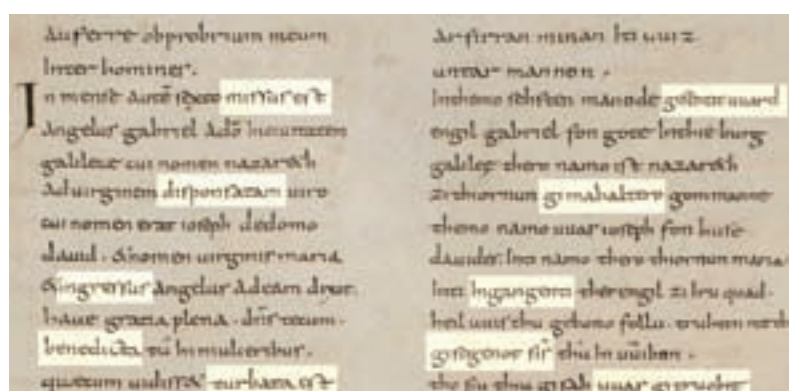 Auferre obprobrium meum
Inter homines.
In mense autē sexto missus est
Angelus gabriel ad
galileae cui nomen nazareth
Ad uirginem disponsatam uiro
cui nomen erat ioseph de domo
dauid. & nomen uirginis maria
& ingressus Angelus Ad eam dixit.
haue gratia plena. dn̄s tecum.
benedicta tū In mulieribus.
quae cum uidisset turbata est
Arfirran minan Iti uuiz
untar mannon.
In themo sehsten manode gisentit uuard
engil gabriel fon gote In thie burg
galilee thero namo ist nazareth
zi thiornun gimahaltero gommanne
themo namo uuas ioseph fon huse
dauides Inti namo thero thiornun maria
Inti Ingangenti ther engil zi Iru quad.
heil uuis thu gebono follu. truhtin mit
gisegenot sīs thū In uuībon.
thō siu thiu gisah uuas gitruobit